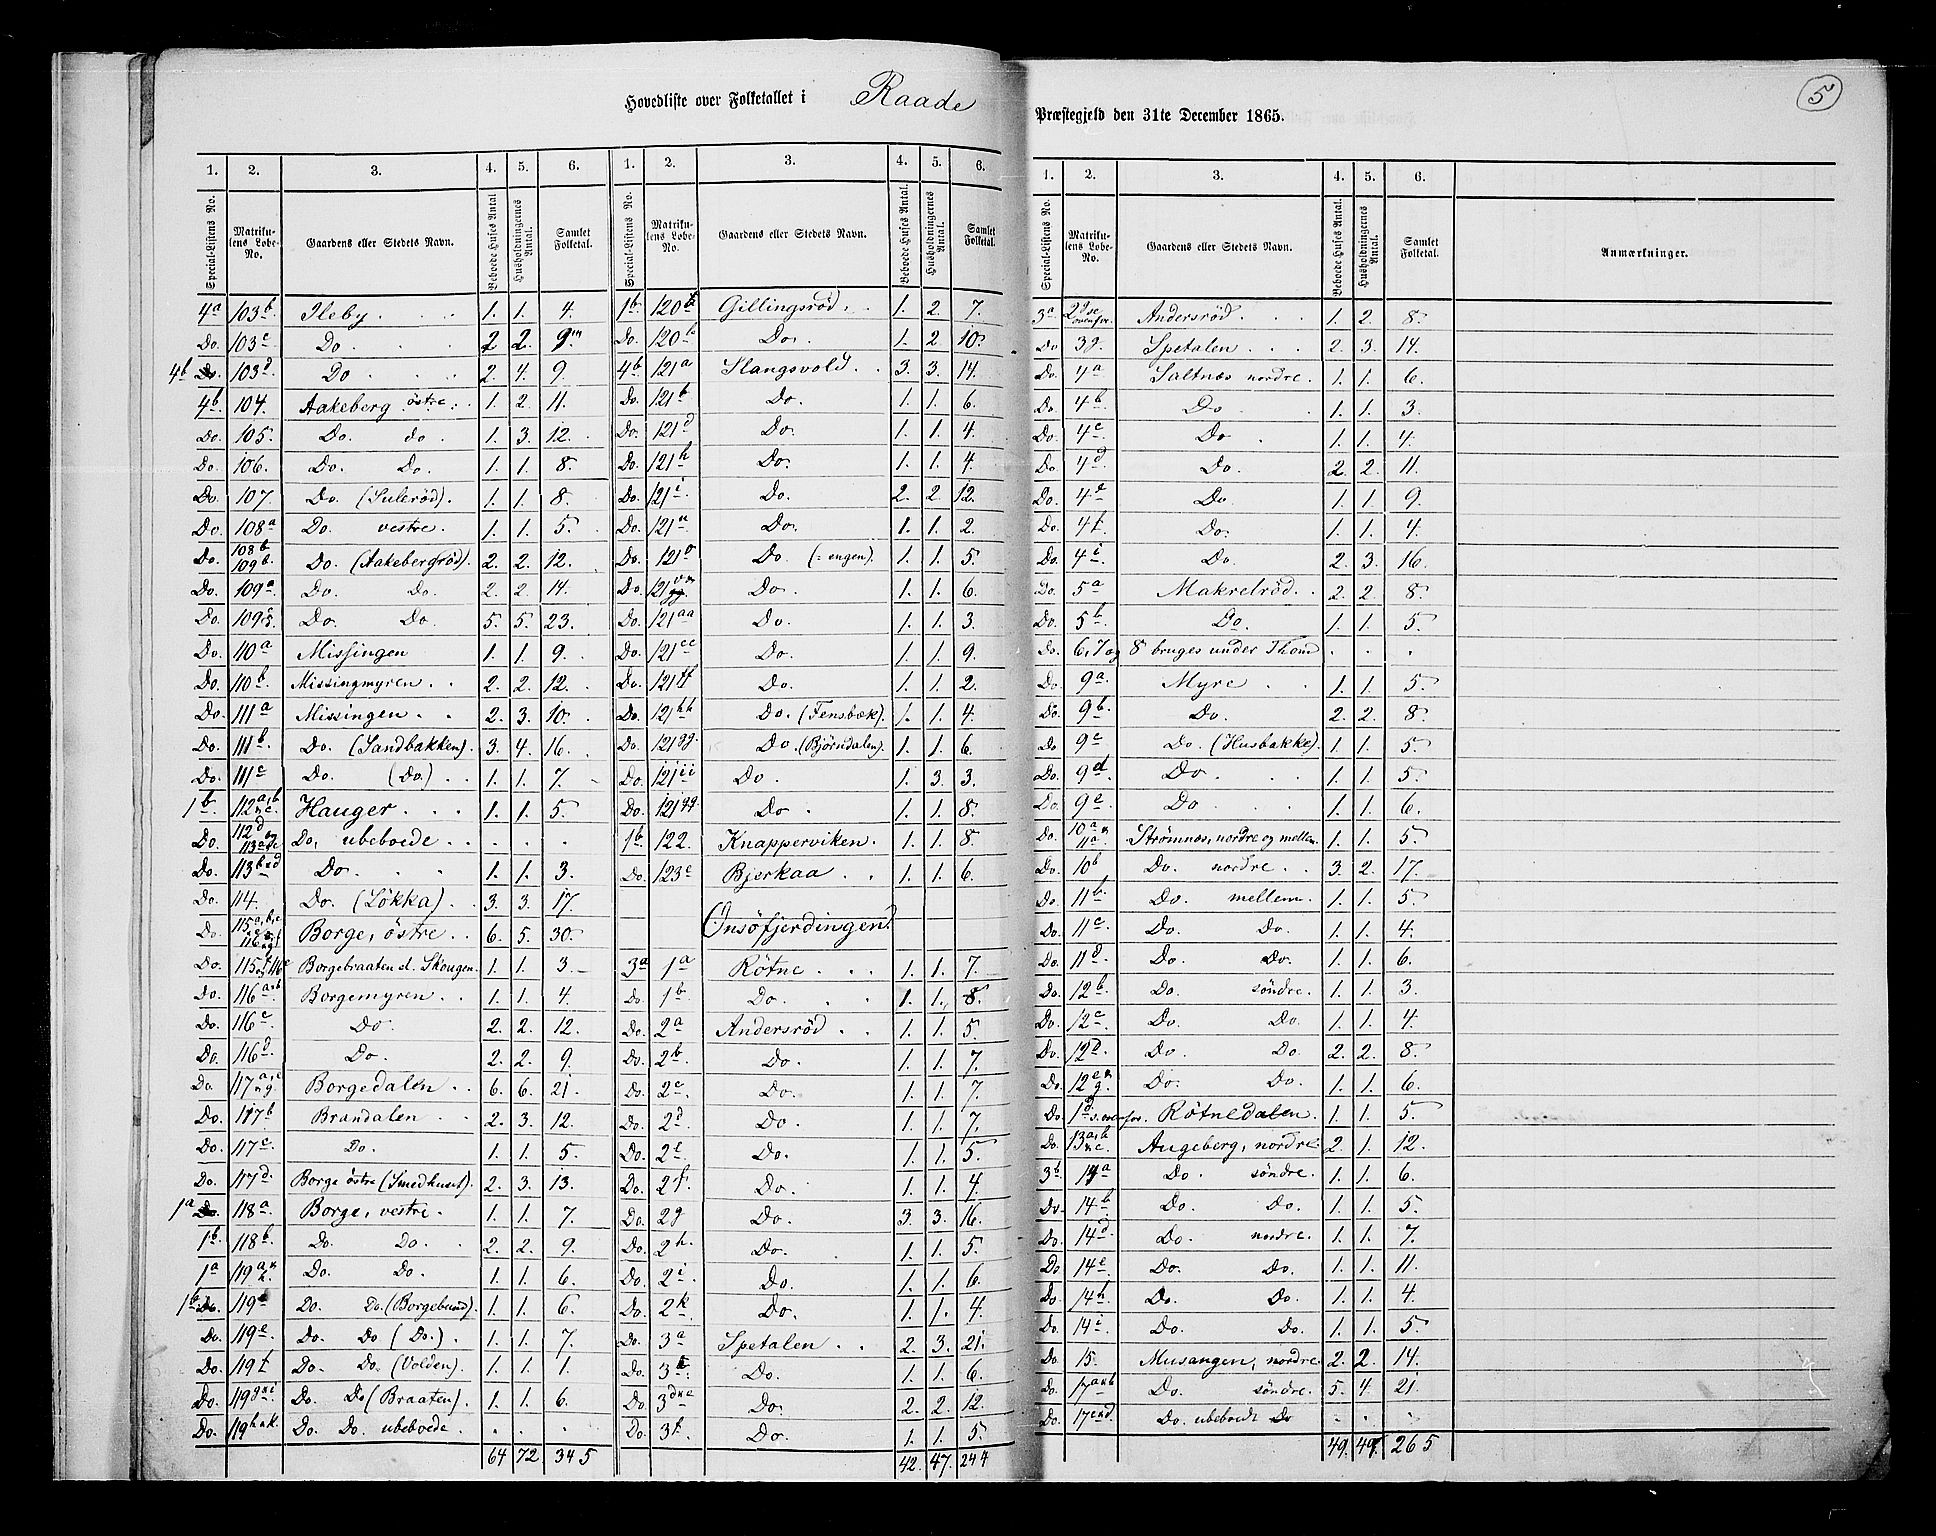 Hovedliste over Folketallet i Raade
Præstegjeld den 31te December 1865.
5
1. 2. 3. 4. 5. 6.
Special-Listens No. Matrikulens Løbe-No. Gaardens eller Stedets Navn. Beboede Huses Antal Husholdningernes Antal. Samlet Folketal.
4a 103b. Ileby 1. 1. 4.
Do. 103c Do 2 2. 9
4b 103d Do 2. 4. 9
4b. 104. Aakeberg østre 1. 2. 11.
Do. 105. Do. do 1. 3. 12.
Do. 106. Do. Do. 1. 1. 8.
Do 107 Do. (Sulerød). 1. 1. 8.
Do 108a Do. vestre. 1. 1. 5.
Do. 108b 109b. Do (Aakebergrød). 2. 2. 12.
Do. 109a Do. Do. 2. 2. 14.
Do. 109c. Do. Do. 5. 5. 23.
Do. 110a Missingen 1. 1. 9.
Do. 110b. Missingmyren 2. 2. 12.
Do. 111a Missingen 2. 3. 10.
Do. 111b. Do. (Sandbakken). 3. 4. 16.
Do. 111c Do. (Do.) 1. 1. 7.
1b. 112a,b c. Hauger 1. 1. 5.
Do. 112d og 113 Do, ubeboede
Do. 113b d Do. 1. 1. 3.
Do. 114. Do. (Løkka). 3. 3. 17.
Do. 115a,b,c 116 Borge, østre 6. 5. 30.
Do. 115 116 Borgebraaten el. Skougen. 1. 1. 3.
Do. 116a b Borgemyren 1. 1. 4.
Do. 116c Do. 2. 2. 12.
Do. 116d. Do. 2. 2. 9.
Do. 117a, c g. Borgedalen 6. 6. 21.
Do. 117b Brandalen 2. 3. 12.
Do. 117c Do. 1. 1. 5.
Do. 117d. Borge østre (Smedhuset). 2. 3. 13.
1a 118a. Borge, vestre. 1. 1. 7.
1b. 118b. Do. Do. 2. 2. 9.
1a 119a Do. Do. 1. 1. 6.
1b 119 Do. Do. (Borgebund). 1. 1. 6.
Do. 119e. Do. Do (Do.). 1. 1. 7.
Do. 119f Do. Do. (Volden). 1. 1. 1.
Do. 119g i Do. Do (Braaten). 1. 1. 6.
Do. 119h k. Do. Do. ubeboede
64 72 345
1. 2. 3. 4. 5. 6.
Special-Listens No. Matrikulens Løbe-No. Gaardens eller Stedets Navn. Beboede Huses Antal. Husholdningernes Antal. Samlet Folketal.
1b. 120 Gillingsrød 1. 2. 7.
Do. 120b Do. 1. 2. 10.
4b. 121a Slangsvold 3. 3. 14.
Do. 121b Do. 1. 1. 6.
Do. 121d Do. 1. 1. 4.
Do. 121h Do. 1. 1. 4.
Do. 121i Do. 2. 2. 12.
Do. 121n Do. 1. 1. 2.
Do. 121o Do (=engen). 1. 1. 5.
Do. 121 Do. 1. 1. 6.
Do. 121aa Do. 1. 1. 3.
Do. 121cc Do. 1. 1. 9.
Do. 121ff Do. 1. 1. 2.
Do. 121hh Do. (Fensbæk). 1. 1. 4.
Do. 121gg. Do. (Bjørndalen). 1. 1. 6.
Do. 121ii Do. 1. 3. 3.
Do. 121qq. Do. 1. 1. 8.
1b 122. Knapperviken. 1. 1. 8.
Do. 123c Bjerkaa 1. 1. 6.
Onsøfjerdingen.
3a 1a Røtne 1. 1. 7.
Do. 1b. Do. 1. 1. 8.
Do. 2a Andersrød 1. 1. 5.
Do. 2b. Do. 1. 1. 7.
Do. 2c Do. 1. 1. 7
Do. 2d Do. 1. 1. 7.
Do. 2e Do. 1. 1. 5.
Do. 2f. Do. 1. 1. 4.
Do. 2g Do. 3. 3. 16.
Do. 2h. Do. 1. 1. 5.
Do. 2i. Do. 1. 1. 6.
Do. 2k Do. 1. 1. 4.
Do. 3a Spetalen 2. 3. 21.
Do. 3 Do. 1. 1. 6.
Do. 3d e Do. 2. 2. 12.
Do. 3f Do. 1. 1. 5.
42. 47. 244
1. 2. 3. 4. 5. 6.
Special-Listens No. Matrikulens Løbe-No. Gaardens eller Stedets Navn. Beboede Huses Antal. Husholdningernes Antal. Samlet Folketal. Anmærkninger.
3a 2d se ovenfor. Andersrød 1. 2. 8.
Do 3g. Spetalen 2. 3. 14.
Do. 4a Saltnes nordre. 1. 1. 6.
Do. 4b Do 1. 1. 3.
Do. 4c Do 1. 1. 4.
Do. 4d Do. 2. 2. 11.
Do. 4e Do. 1. 1. 9.
Do. 4f. Do. 1. 1. 4.
Do. 4i Do. 2. 3. 16.
Do. 5a Makrelrød. 2. 2. 8.
Do. 5b. Do. 1. 1. 5.
Do. 6, 7 og 8 bruges under Thom
Do. 9a. Myre 1. 1. 5.
Do 9b. Do. 2. 2. 8.
Do 9c Do. (Husbakke). 1. 1. 5.
Do. 9d Do. 1. 1. 5.
Do. 9e Do 1. 1. 6.
Do. 10a 11a Strømnes, nordre og mellem. 1. 1. 5.
Do. 10b Do. nordre. 3. 2. 17.
Do. 11b. Do. mellem. 1. 1. 5.
Do. 11c Do. Do. 1. 1. 4.
Do. 11d Do. Do. 1. 1. 6.
Do. 12b. Do. søndre. 1. 1. 3.
Do. 12c Do. Do. 1. 1. 4.
Do. 12d Do. Do. 2. 2. 8.
Do. 12e g. Do. Do. 1. 1. 6.
Do. 1d s. ovenfor. Røtnedalen. 1. 1. 5.
Do. 13a,b c. Augeberg, nordre. 2. 1. 12.
3b 14a Do. søndre. 1. 1. 6.
Do 14b Do. Do. 1. 1. 5.
Do. 14d Do. nordre. 1. 1. 7.
Do 14e Do. Do. 1. 1. 11.
Do. 14h Do. Do. 1. 1. 4.
Do. 14i Do. Do. 1. 1. 5.
Do 15. Musangen, nordre. 2. 2. 14.
Do. 17a b Do. søndre. 5. 4. 21.
Do. 17c d. Do. ubeboede Do
49. 49. 265